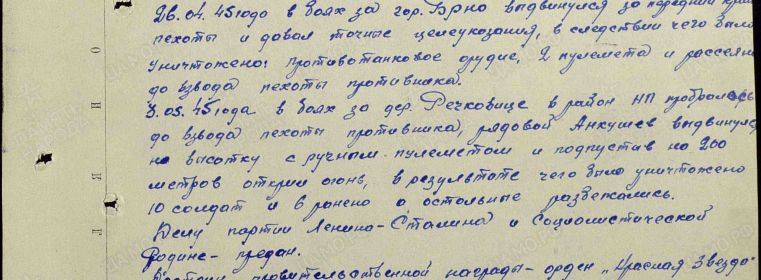 26.04.45 года в боях за гор. Брно выдвинулся за передний край
пехоты и давал точные целеуказания, в следствии чего было
уничтожено: противотанковое орудие, 2 пулемета и рассеяно
до взвода пехоты противника.
3.05.45 года в боях за дер. Речковице в район НП пробралось
до взвода пехоты противника, рядовой Анкушев выдвинулся
на высотку с ручным пулеметом и подпустив на 200
метров открыл огонь, в результате чего было уничтожено
10 солдат и ранено а остальные разбежались.
Делу партии Ленина-Сталина и Социалистической
Родине - предан.
правительственной награды - орден "Красная Звезда"